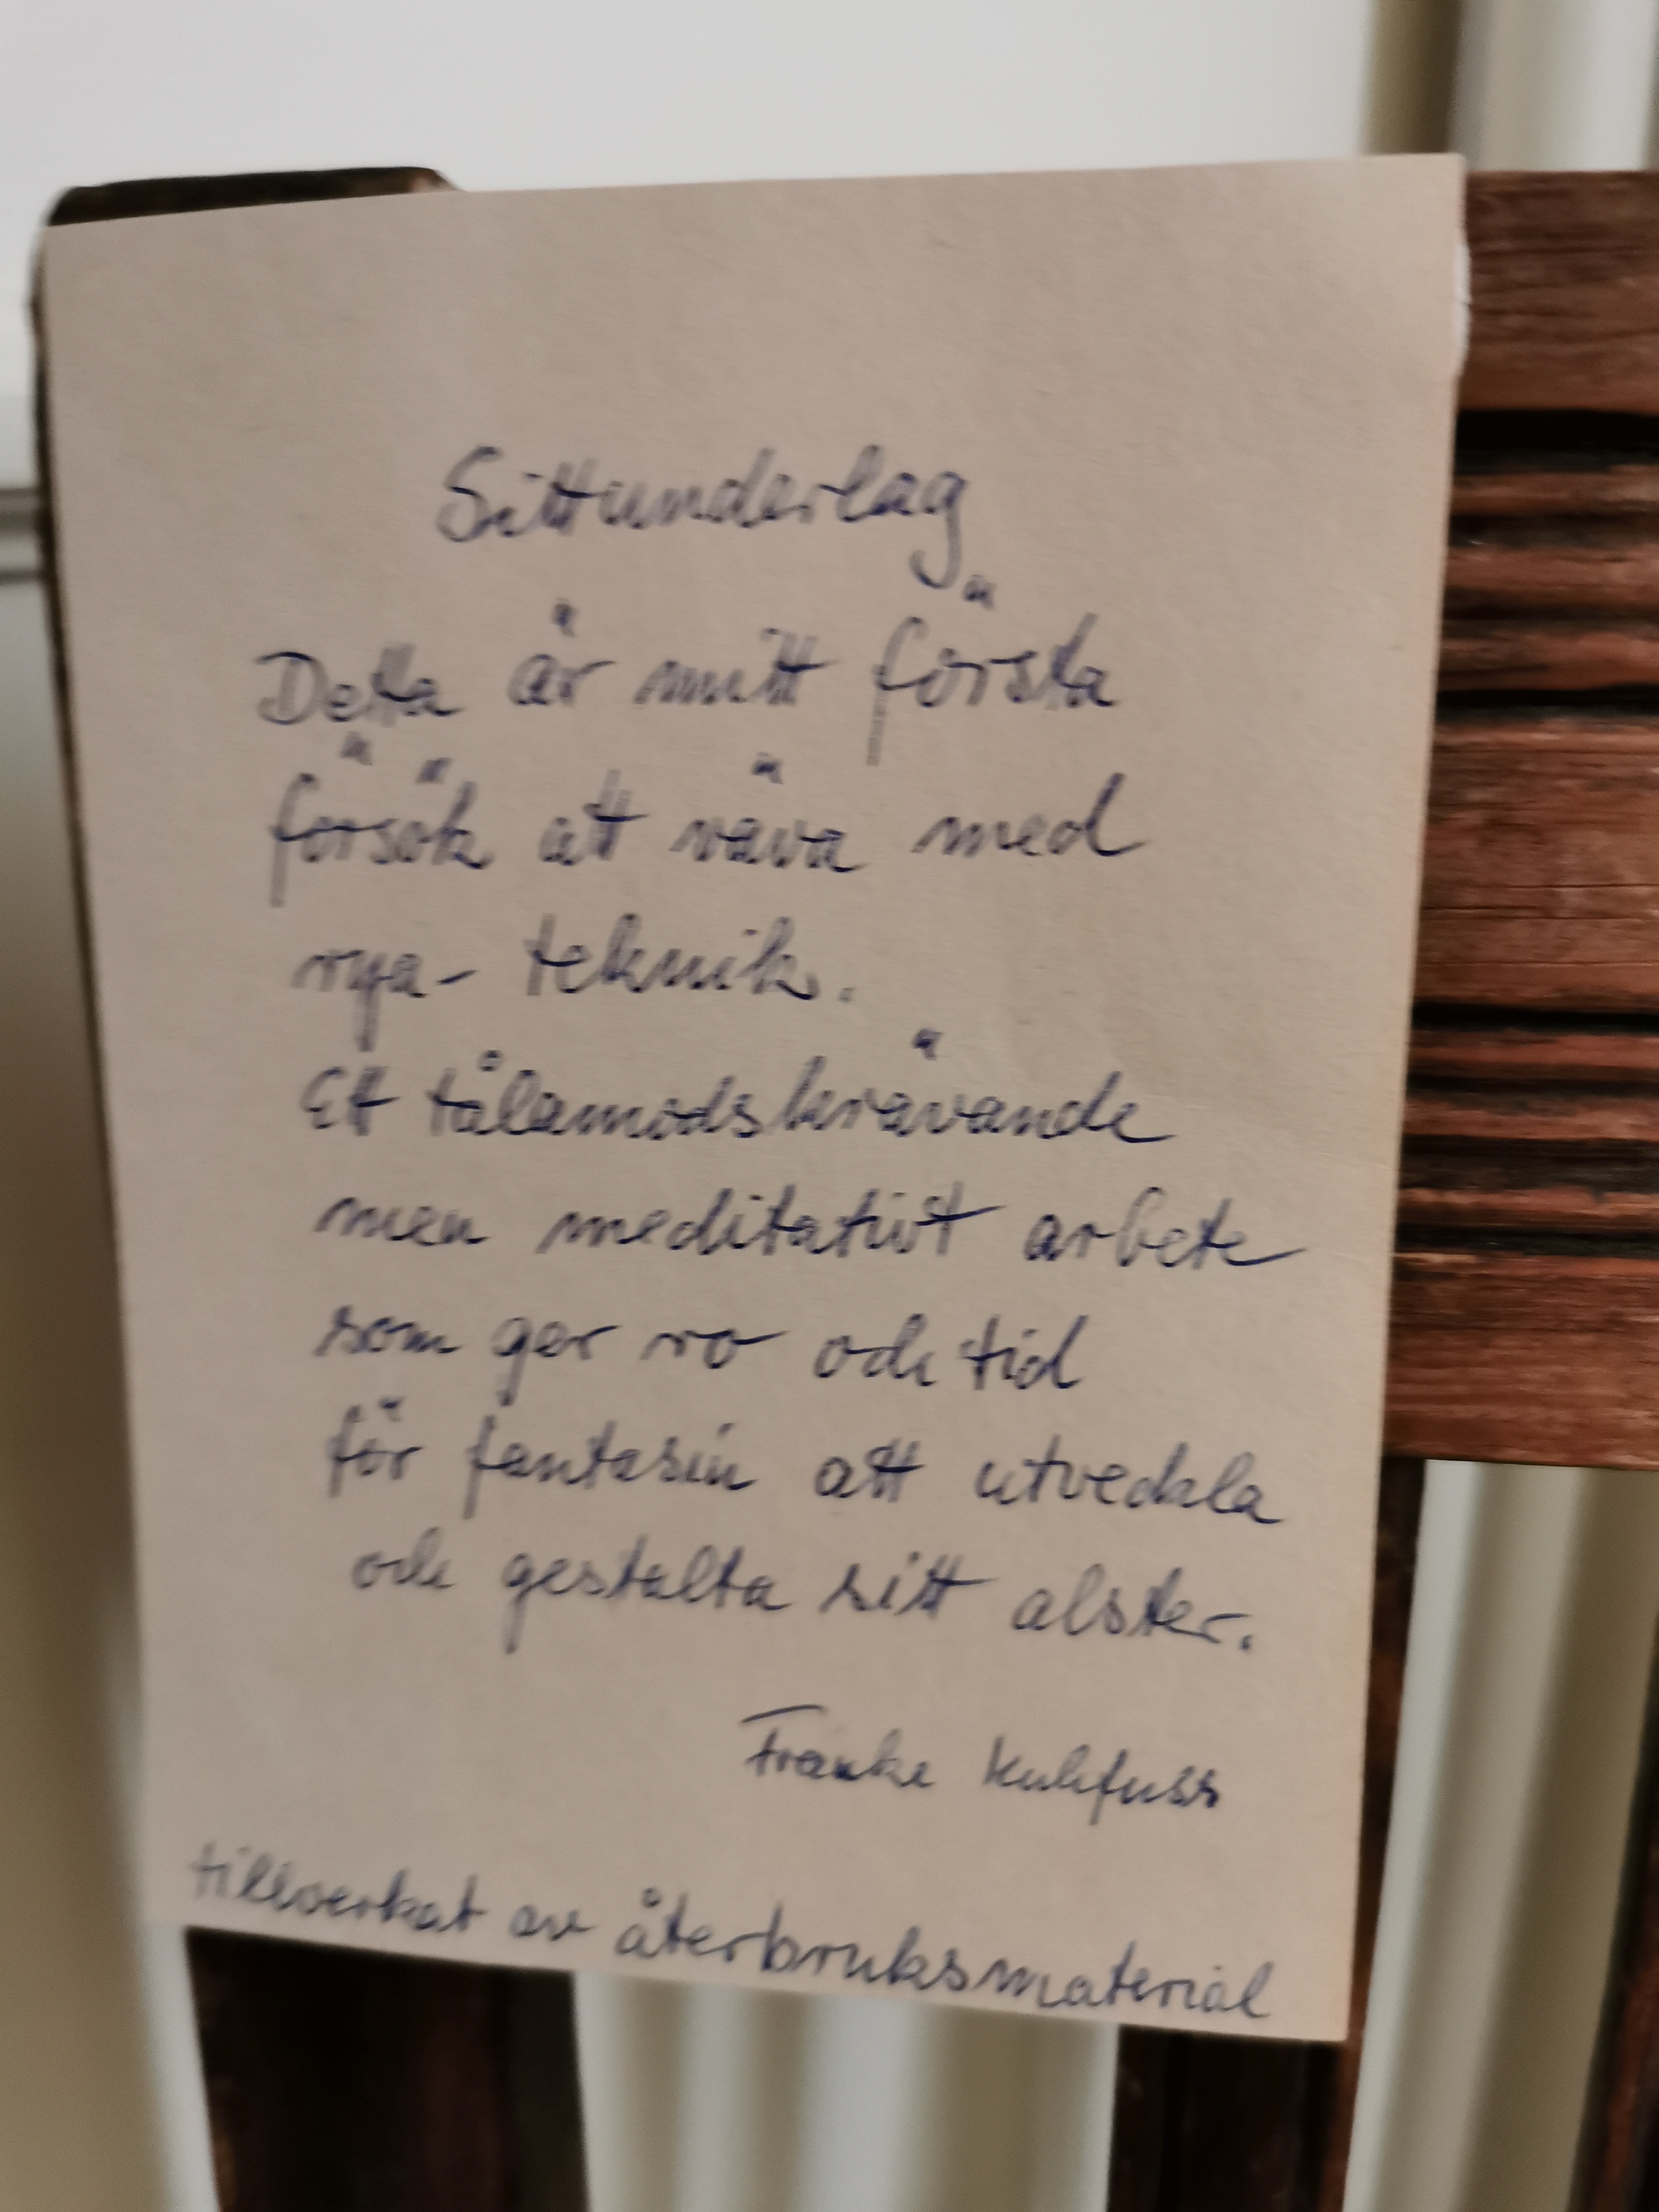 Sittunderlag
Detta är mitt första
försök att väva med
rya- teknik.
Ett tålamodskrävande
men meditativt arbete
som ger ro och tid
för fantasin att utveckla
och gestalta sitt alster.
Frauke Kuhfuss
tillverkat av återbruksmaterial